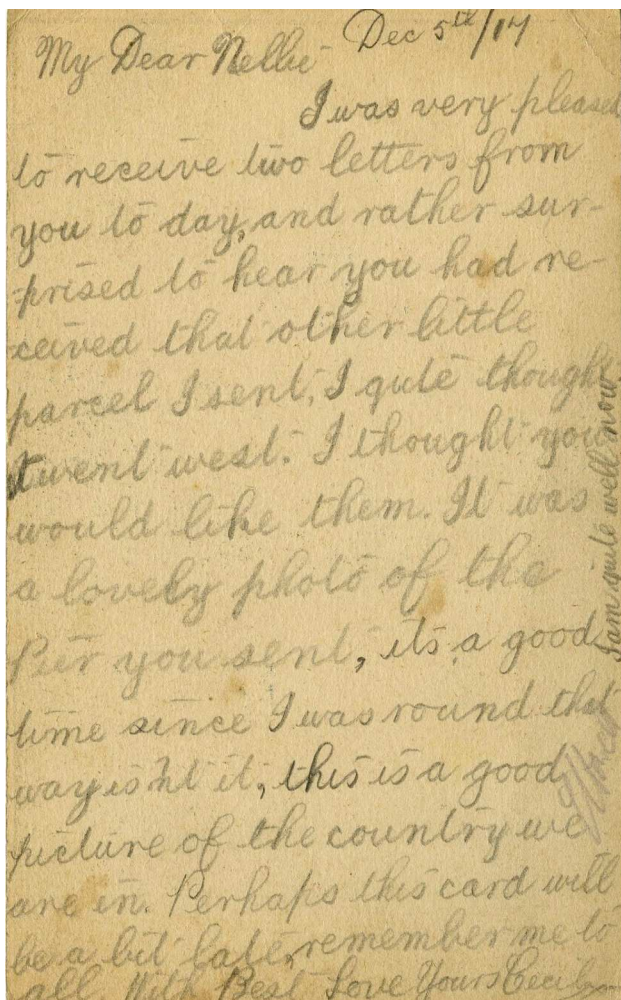 Dec 5th/17
My Dear Nellie
I was very pleased
to receive two letters from
you to day, and rather sur-
prised to hear you had re-
ceived that other little
parcel I sent, I qute thought
it went west. I thought you
would like them. It was
a lovely photo of the
Pier you sent, its a good
time since I was round that
way is'nt it, this is a good
picture of the country we
are in. Perhaps this card will
be a bit late, remember me to
all With Best Love Yours Cecil
I am quite well now